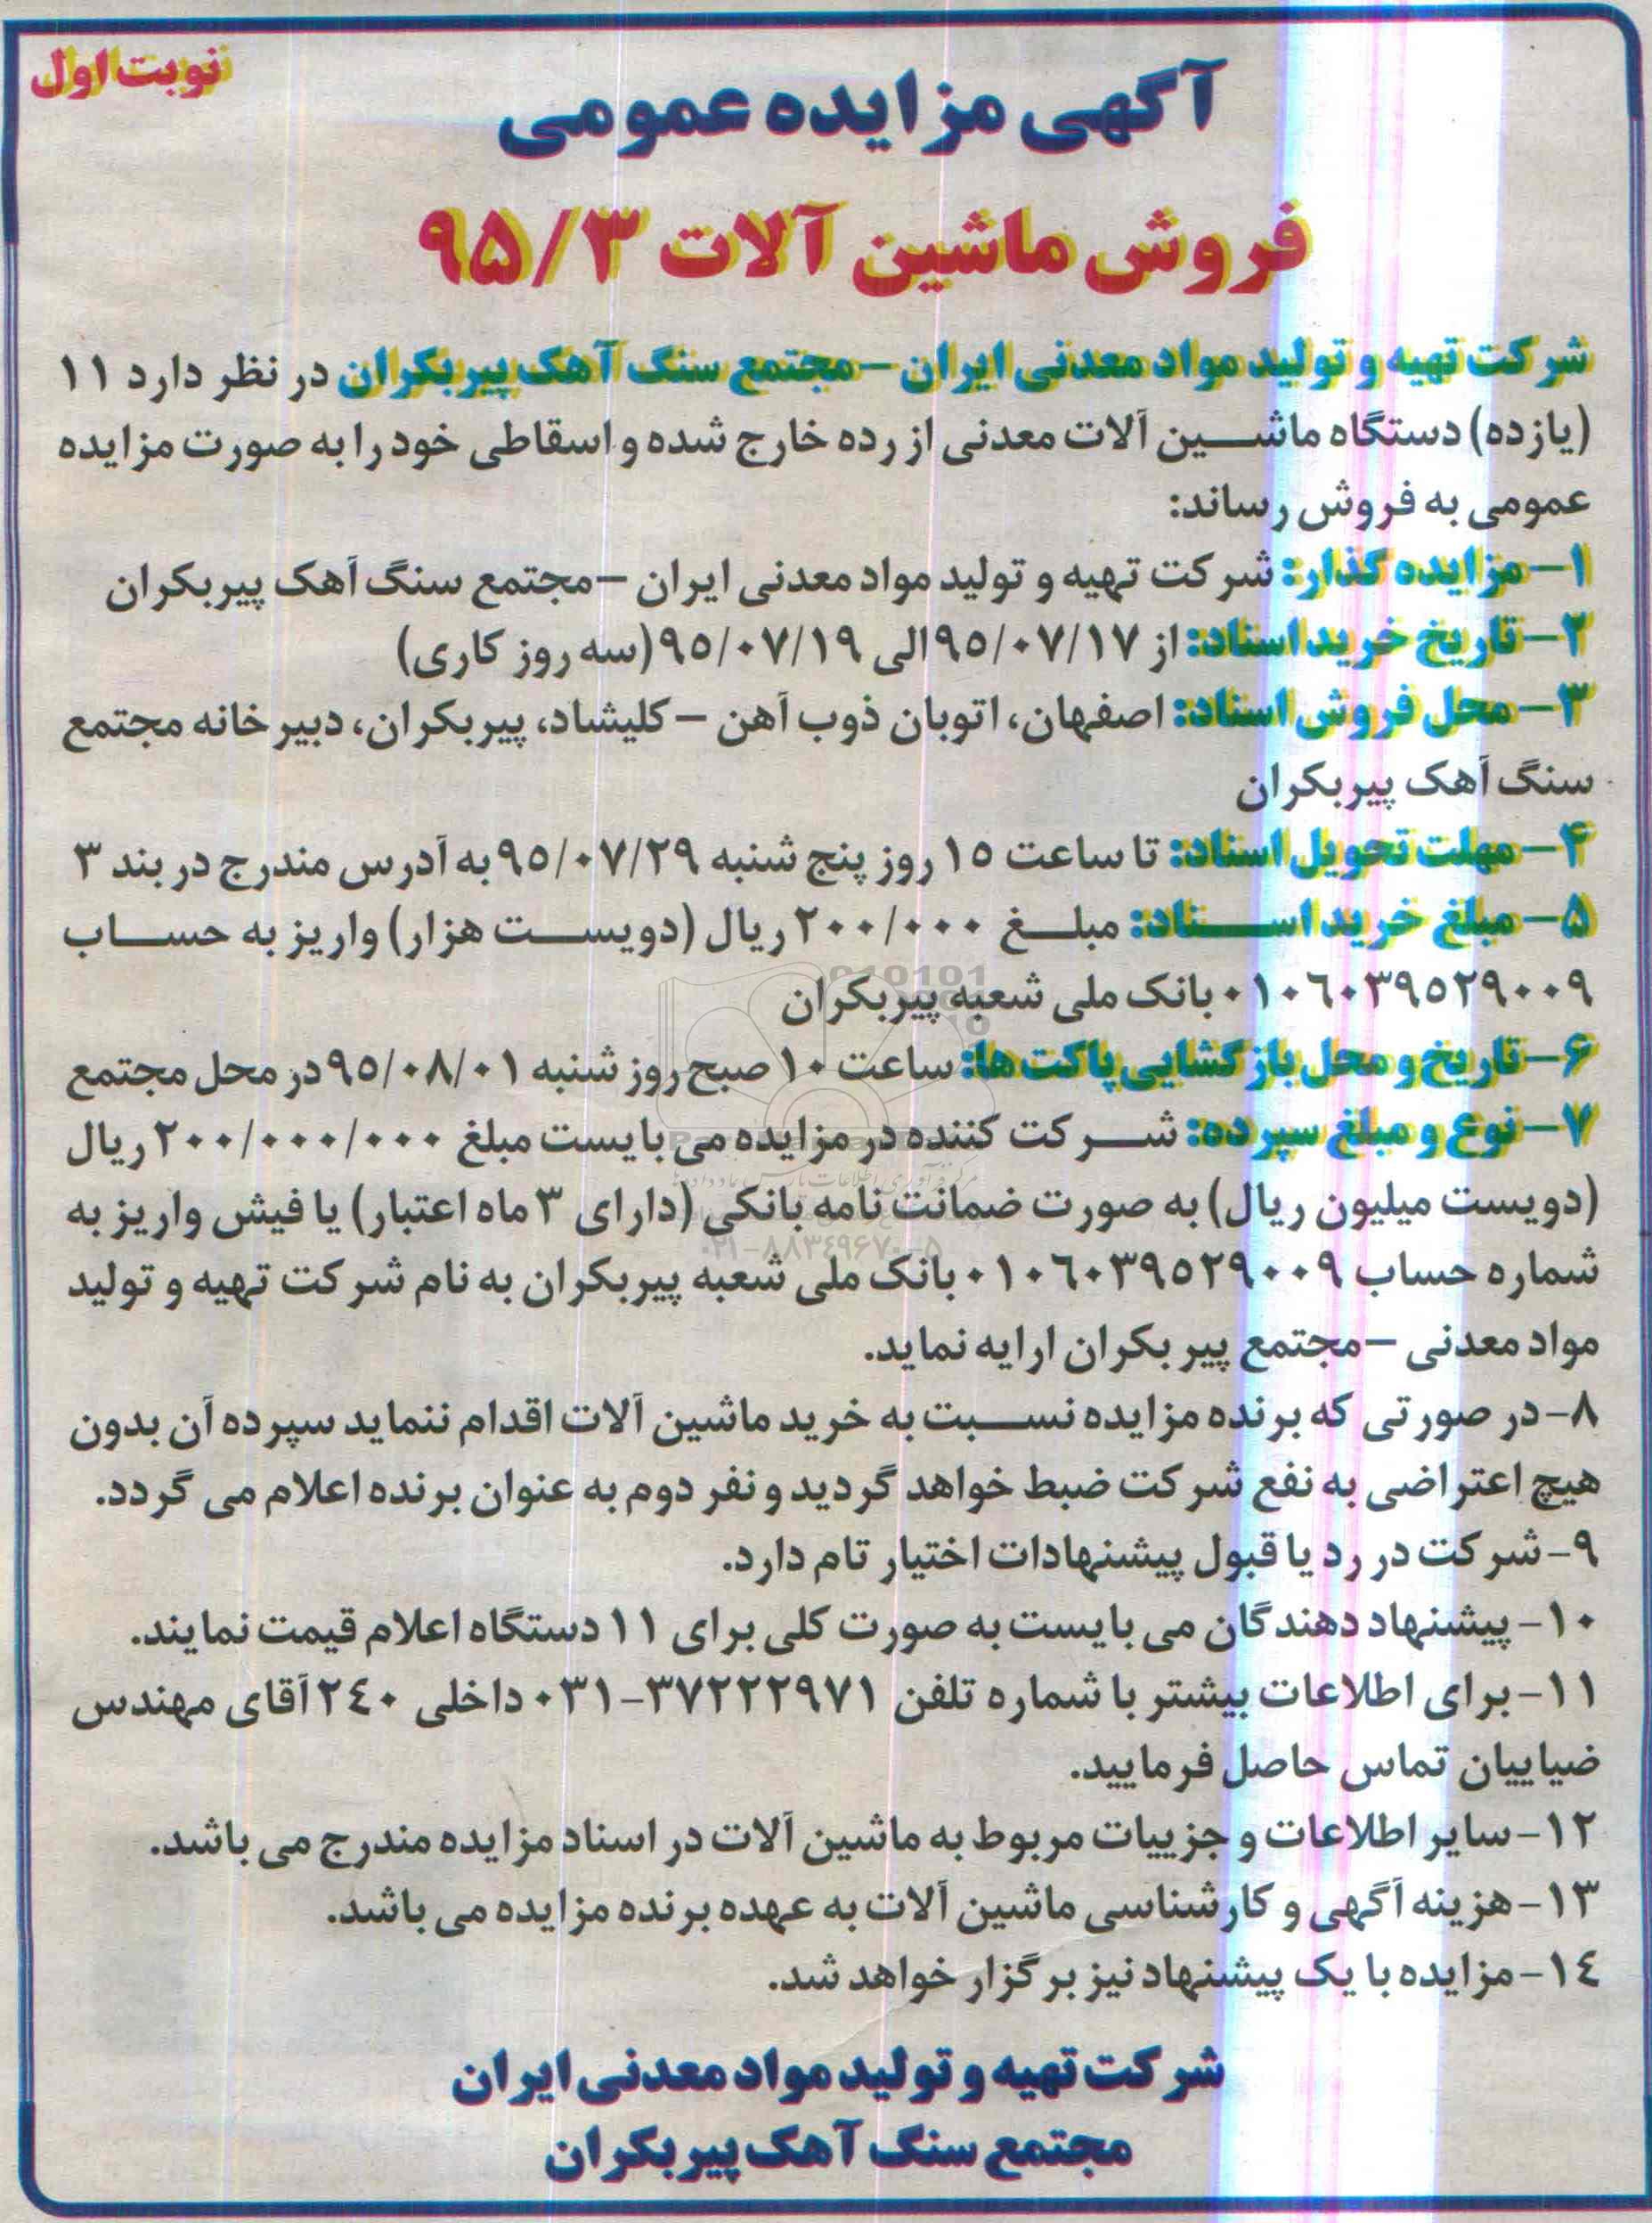 نوبت اول
آگهی مزایده عمومی
فروش ماشین آلات ۹۵/۳
شرکت تهیه و تولید مواد معدنی ایران – مجتمع سنگ آهک پیربکران در نظر دارد ۱۱
(یازده) دستگاه ماشین آلات معدنی از رده خارج شده و اسقاطی خود را به صورت مزایده
عمومی به فروش رساند:
۱– مزایده گذار: شرکت تهیه و تولید مواد معدنی ایران –مجتمع سنگ آهک پیربکران
۲– تاریخ خرید اسناد: از ۹۵/۰۷/۱۷ الی ۹۵/۰۷/۱۹ (سه روز کاری)
۳– محل فروش اسناد: اصفهان، اتوبان ذوب آهن – کلیشاد، پیربکران، دبیرخانه مجتمع
سنگ آهک پیربکران
۴– مهلت تحویل اسناد: تا ساعت ۱۵ روز پنج شنبه ۹۵/۰۷/۲۹ به آدرس مندرج در بند ۳
۵– مبلغ خرید اسناد: مبلغ ۲۰۰/۰۰۰ ریال (دویست هزار) واریز به حساب
۰۱۰۶۰۳۹۵۲۹۰۰۹ بانک ملی شعبه پیربکران
۶– تاریخ و محل بازگشایی پاکت ها: ساعت ۱۰ صبح روز شنبه ۹۵/۰۸/۰۱ در محل مجتمع
۷– نوع و مبلغ سپرده: شرکت کننده در مزایده می بایست مبلغ ۲۰۰/۰۰۰/۰۰۰ ریال
(دویست میلیون ریال) به صورت ضمانت نامه بانکی (دارای ۳ ماه اعتبار) یا فیش واریز به
شماره حساب ۰۱۰۶۰۳۹۵۲۹۰۰۹ بانک ملی شعبه پیربکران به نام شرکت تهیه و تولید
مواد معدنی –مجتمع پیر بکران ارایه نماید.
۸- در صورتی که برنده مزایده نسبت به خرید ماشین آلات اقدام ننماید سپرده آن بدون
هیچ اعتراضی به نفع شرکت ضبط خواهد گردید و نفر دوم به عنوان برنده اعلام می گردد.
۹- شرکت در رد یا قبول پیشنهادات اختیار تام دارد.
۱۰- پیشنهاد دهندگان می بایست به صورت کلی برای ۱۱ دستگاه اعلام قیمت نمایند.
۱۱- برای اطلاعات بیشتر با شماره تلفن ۳۷۲۲۲۹۷۱-۰۳۱ داخلی ۲۴۰ آقای مهندس
ضیاییان تماس حاصل فرمایید.
۱۲- سایر اطلاعات و جزییات مربوط به ماشین آلات در اسناد مزایده مندرج می باشد.
۱۳- هزینه آگهی و کارشناسی ماشین آلات به عهده برنده مزایده می باشد.
۱۴- مزایده با یک پیشنهاد نیز برگزار خواهد شد.
شرکت تهیه و تولید مواد معدنی ایران
مجتمع سنگ آهک پیربکران
۰۲۱-۸۸۳۴۹۶۷۰-۵